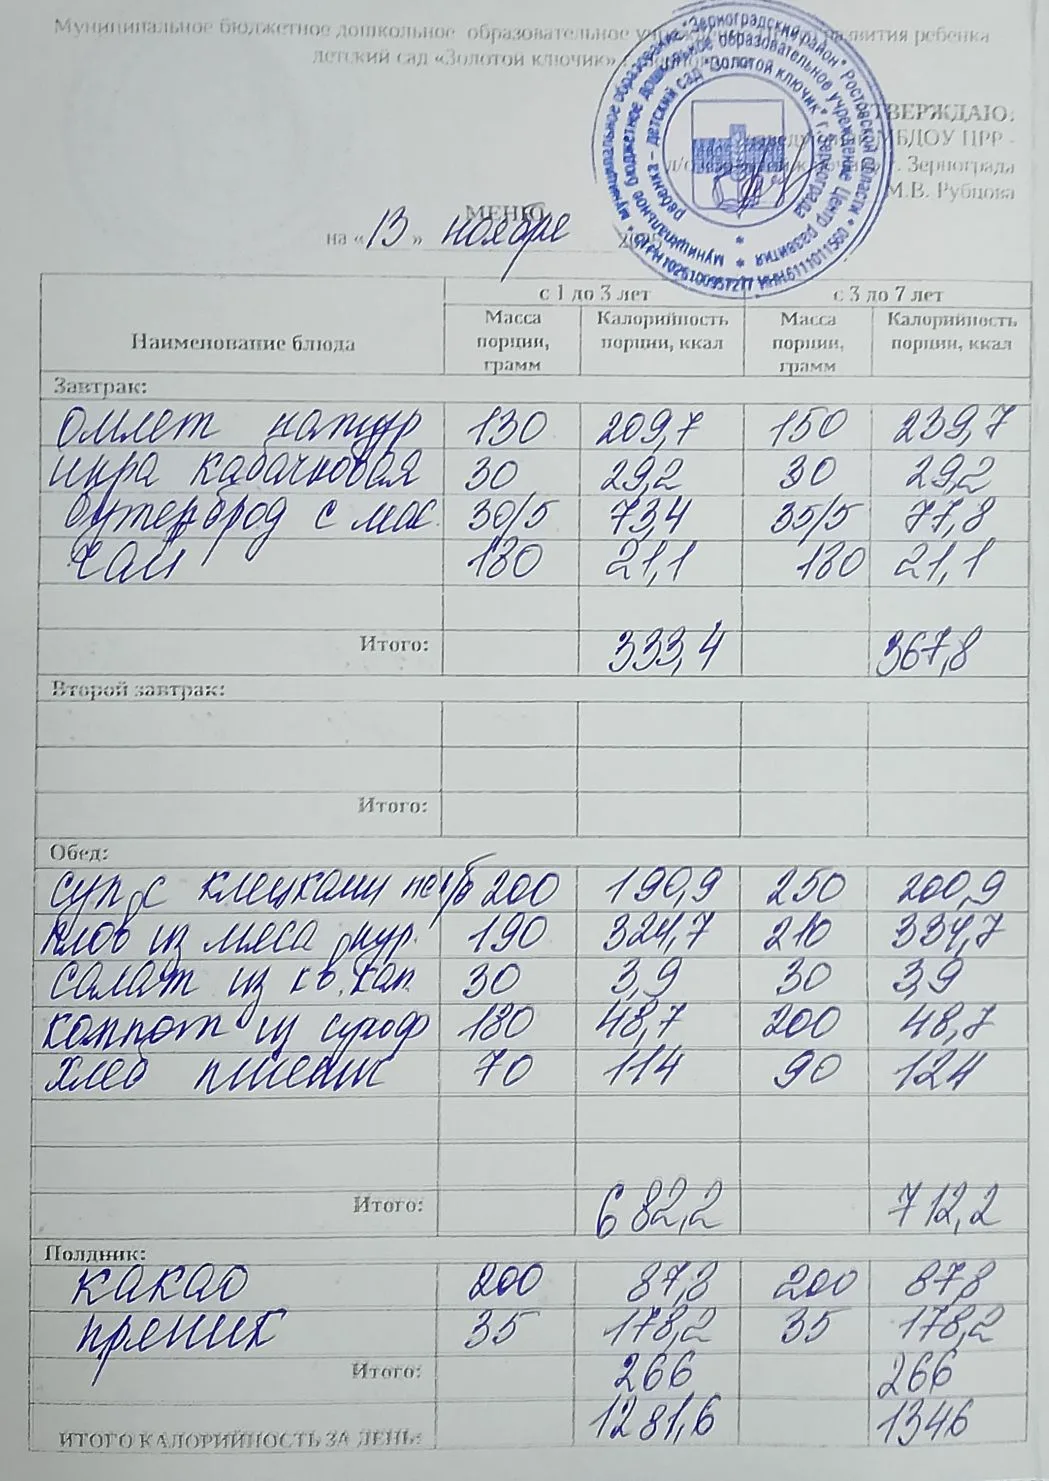 Муниципальное бюджетное дошкольное образовательное учреждение Центр развития ребенка
детский сад «Золотой ключик»
УТВЕРЖДАЮ:
МБДОУ ЦРР -
г. Зернограда
М.В. Рубцова
МЕНЮ
на «13» ноября
с 1 до 3 лет с 3 до 7 лет
Наименование блюда Масса порции, грамм Калорийность порции, ккал Масса порции, грамм Калорийность порции, ккал
Завтрак:
омлет натур 130 209,7 150 239,7
икра кабачковая 30 29,2 30 29,2
бутерброд с мас. 30/5 73,4 35/5 77,8
чай 180 21,1 180 21,1
Итого: 333,4 367,8
Второй завтрак:
Итого:
Обед:
суп с клецками на к/б 200 190,9 250 200,9
плов из мяса кур. 190 324,7 210 334,7
салат из кв. кап. 30 3,9 30 3,9
компот из сухоф 180 48,7 200 48,7
хлеб пшенич 70 114 90 124
Итого: 682,2 712,2
Полдник:
какао 200 87,8 200 87,8
пряник 35 178,2 35 178,2
Итого: 266 266
ИТОГО КАЛОРИЙНОСТЬ ЗА ДЕНЬ: 1281,6 1346